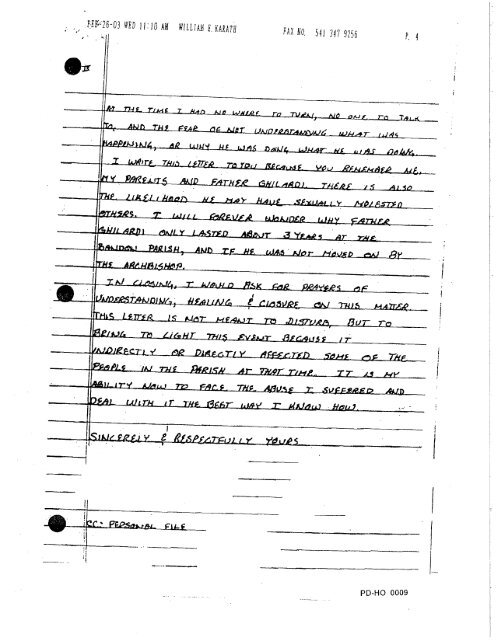 FEB-26-03 WED 11:10 AM WILLIAM E. KARATH FAX NO. 541 347 9256 P. 4
AT THE TIME I HAD NO WHERE TO TURN, NO ONE TO TALK
TO, AND THE FEAR OF NOT UNDERSTANDING WHAT WAS
HAPPENING, OR WHY HE WAS DOING WHAT HE WAS DOING.
I WRITE THIS LETTER TO YOU BECAUSE YOU REMEMBER ME,
MY PARENTS AND FATHER GHILARDI. THERE IS ALSO
THE LIKELIHOOD HE MAY HAVE SEXUALLY MOLESTED
OTHERS. I WILL FOREVER WONDER WHY FATHER
GHILARDI ONLY LASTED ABOUT 3 YEARS AT THE
BANDON PARISH, AND IF HE WAS NOT MOVED ON BY
THE ARCHBISHOP.
IN CLOSING, I WOULD ASK FOR PRAYERS OF
UNDERSTANDING, HEALING & CLOSURE ON THIS MATTER.
THIS LETTER IS NOT MEANT TO DISTURB, BUT TO
BRING TO LIGHT THIS EVENT BECAUSE IT
INDIRECTLY OR DIRECTLY AFFECTED SOME OF THE
PEOPLE IN THE PARISH AT THAT TIME. IT IS MY
ABILITY NOW TO FACE THE ABUSE I SUFFERED AND
DEAL WITH IT THE BEST WAY I KNOW HOW.
SINCERELY & RESPECTFULLY YOURS
CC: PERSONAL FILE
PD-HO 0009